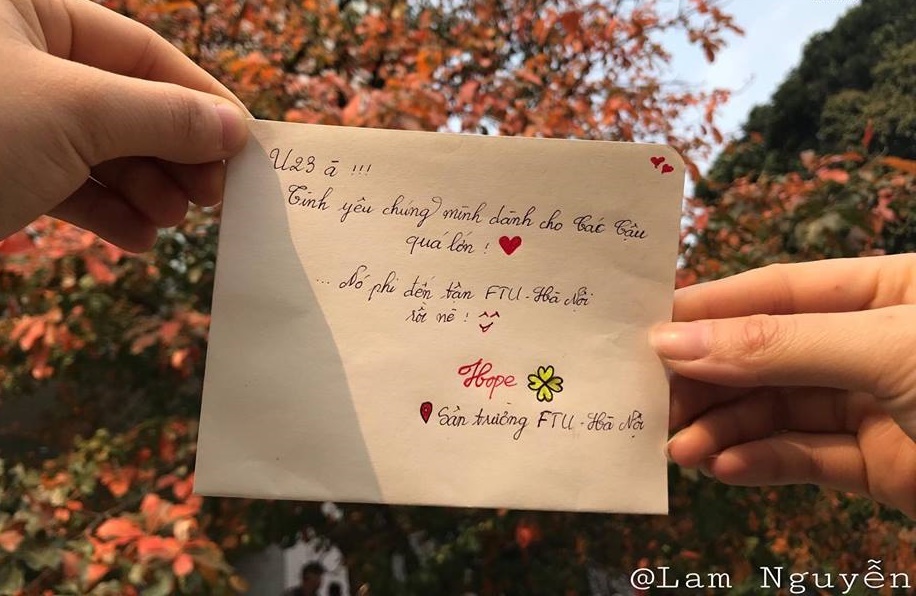 U23 ā !!!
Tình yêu chúng mình dành cho Các Cậu
quá lớn !
... Nó phi đến tận FTU - Hà Nội
rồi nè !
Hope
Sân trường FTU - Hà Nội
@Lam Nguyễn